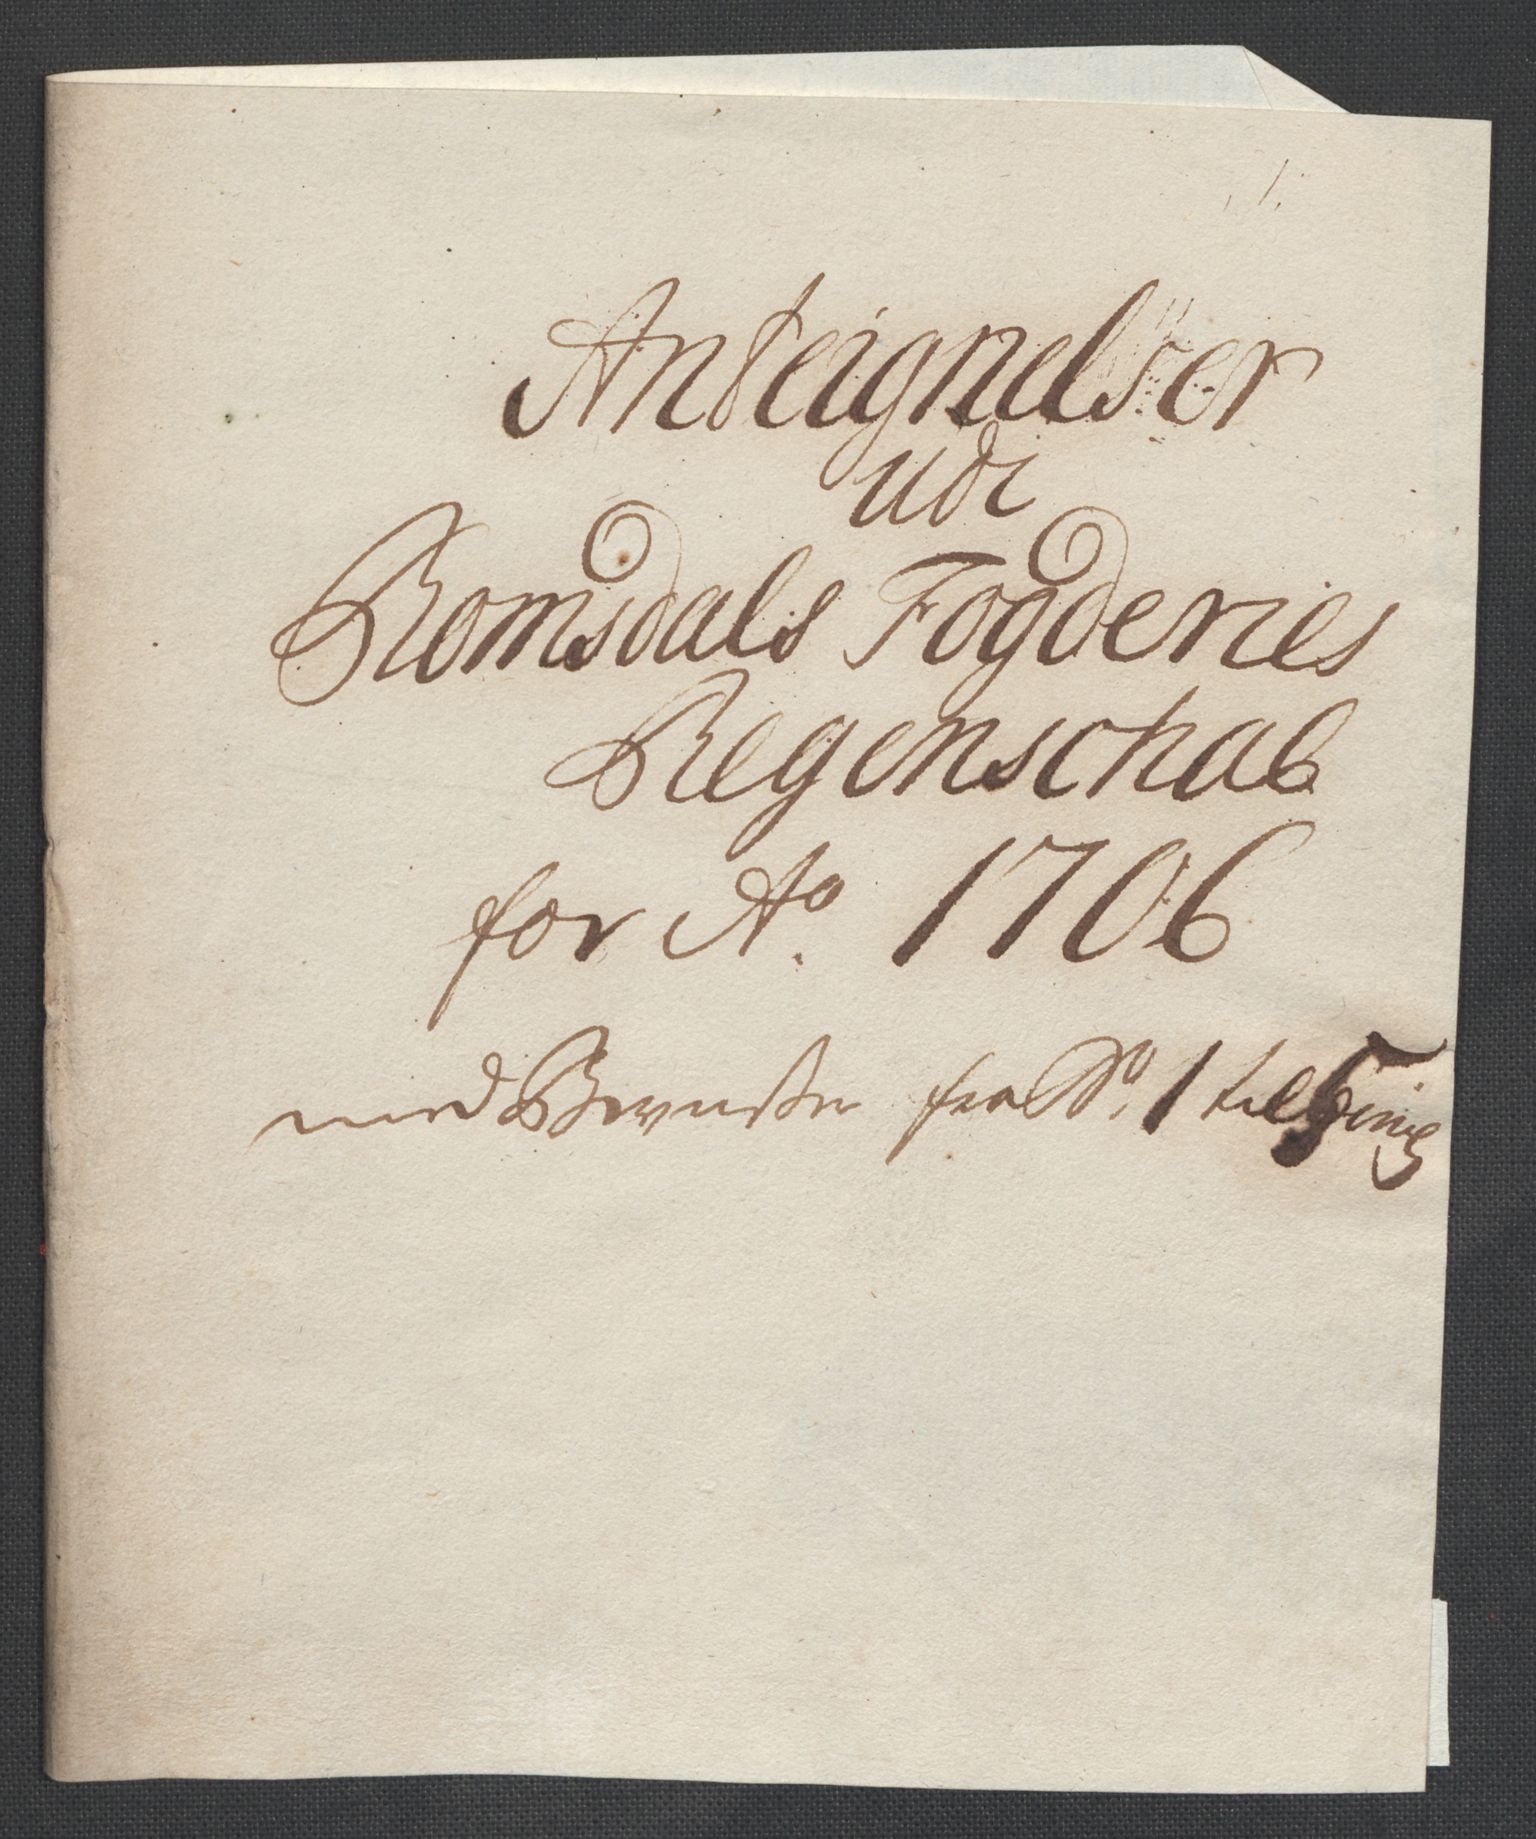 1.
Anteignelser
udi
Romsdals Fogderies
Regenschab
for Ao. 1706
med Beviiser fra No. 1 til 5